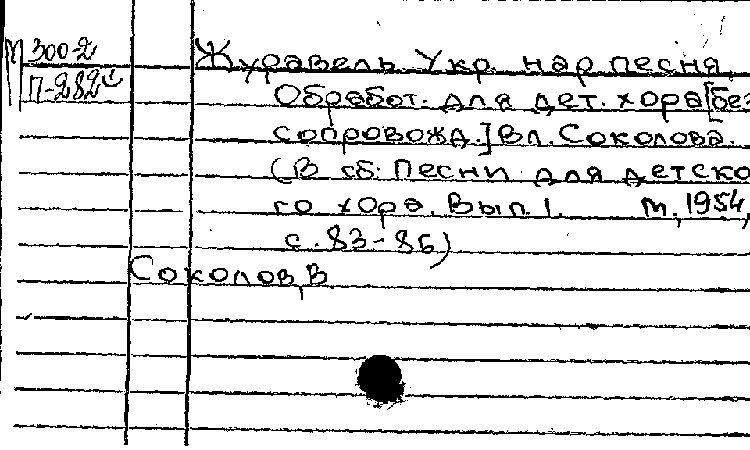 М 300-2
П-282
Журавель Укр. нар. песня.
Обработ. для дет. хора [без
сопровожд.] Вл. Соколова.
(В сб: Песни для детско
го хора. Вып. 1. М, 1954,
с. 83-85)
Соколов, В